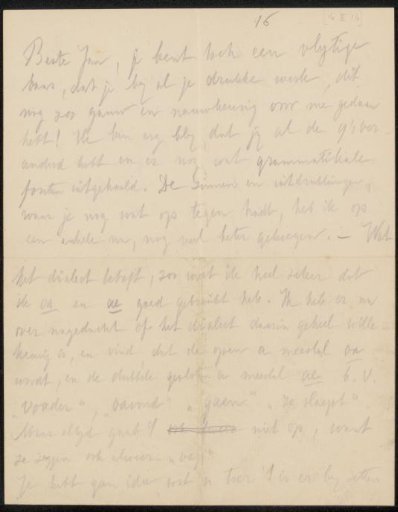 16
Beste Jan, je bent toch een vlijtige
baas, dat je bij al je drukke werk, dit
nog zoo gauw en nauwkeurig voor me gedaan
hebt! Ik ben erg blij, dat jij al de y's ver
anderd hebt en er nog wat grammatikale
fouten uitgehaald. De zinnen en uitdrukkingen,
waar je nog wat op tegen hadt, heb ik op
een enkele na, nog veel beter gekregen. — Wat
het dialect betreft, zoo weet ik heel zeker dat
ik oa en ae goed gebruikt heb. Ik heb er nu
over nagedacht of het dialect daarin geheel wille-
keurig is, en vind dat de open a meestal oa
wordt, en de dubbele gesloten a meestal ae b.v.
"voader", "oavond" "gaern" "ze slaept"
Maar altijd gaat 't niet op, want
ze zeggen ook alweer
Je hebt geen idee wat 'n toer 't is er bij